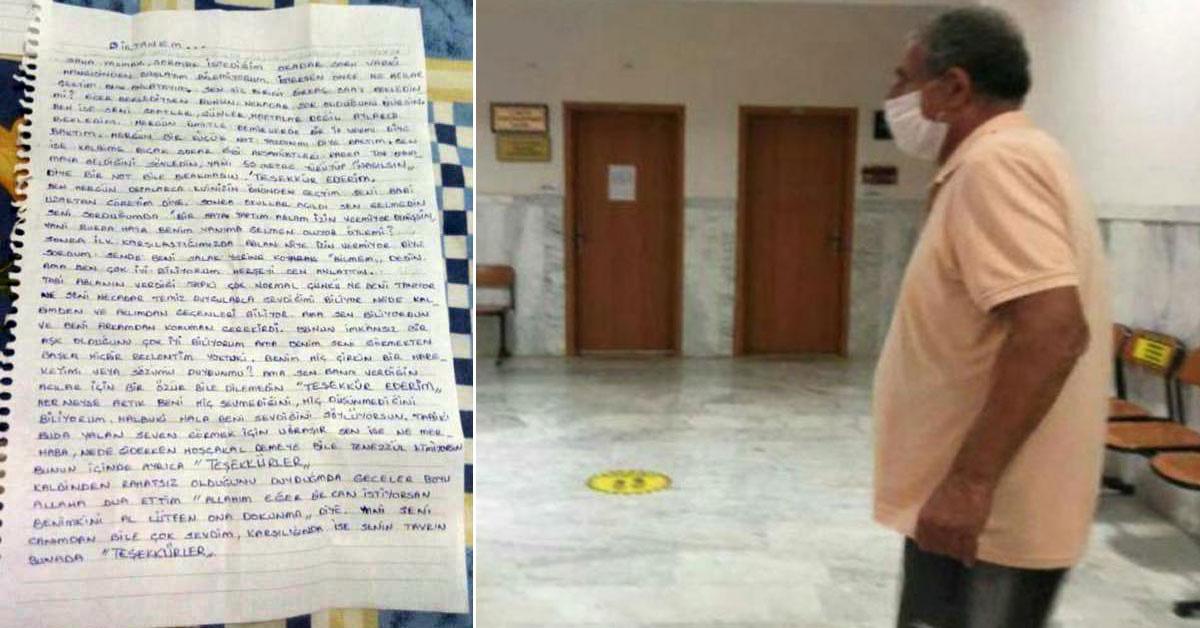 BİRTANEM...
SANA YAZMAK, SORMAK İSTEDİĞİM OKADAR SORU VARKİ
HANGİSİNDEN BAŞLAYIM BİLEMİYORUM. İSTERSEN ÖNCE NE ACILAR
ÇEKTİM ONU ANLATAYIM. SEN HİÇ BİRİNİ BİRKAÇ SAAT BEKLEDİN
Mİ? EĞER BEKLEDİYSEN BUNUN NEKADAR ZOR OLDUĞUNU BİLİRSİN
BEN İSE SENİ SAATLER, GÜNLER, HAFTALAR DEĞİL AYLARCA
BEKLEDİM. HERGÜN ÜMİTLE DEMİRLERDE BİR İP VARMI DİYE
BAKTIM. HERGÜN BİR KÜÇÜK NOT YAZDINMI DİYE BAKTIM. SEN
İSE KALBİME BIÇAK SOKAR GİBİ
MANA GELDİĞİNİ SÖYLEDİN, YANİ 50 METRE YÜRÜYÜP
DİYE BİR NOT BİLE BIRAKMADIN. "TEŞEKKÜR EDERİM,,
BEN HERGÜN DEFALARCA EVİNİZİN ÖNÜNDEN GEÇTİM SENİ BARİ
UZAKTAN GÖREYİM DİYE. SONRA OKULLAR AÇILDI SEN GELMEDİN
SENİ SORDUĞUMDA "BİR HATA YAPTIM ABLAM İZİN VERMİYOR DEMİŞSİN,
YANİ BURDA HATA BENİM YANIMA GELMEN OLUYOR ÖYLEMİ?
SONRA İLK KARŞILAŞTIĞIMIZDA ABLAN NİYE İZİN VERMİYOR DİYE
SORDUM. SENDE BENİ SALAK YERİNE KOYARAK "BİLMEM,, DEDİN.
AMA BEN ÇOK İYİ BİLİYORUM HERŞEYİ SEN ANLATTIN.
TABİ ABLANIN VERDİĞİ TEPKİ ÇOK NORMAL ÇÜNKÜ NE BENİ TANIYOR
NE SENİ NECADAR TEMİZ DUYGULARLA SEVDİĞİMİ BİLİYOR NEDE KAL-
BİMDEN VE AKLIMDAN GEÇENLERİ BİLİYOR. AMA SEN BİLİYORDUN
VE BENİ ARKAMDAN KORUMAN GEREKİRDİ. BUNUN İMKANSIZ BİR
AŞK OLDUĞUNU ÇOK İYİ BİLİYORUM AMA BENİM SENİ GÖRMEKTEN
BAŞKA HİÇBİR BEKLENTİM YOKTUKİ, BENİM HİÇ ÇİRKİN BİR HARE-
KETİMİ VEYA SÖZÜMÜ DUYDUNMU? AMA SEN BANA VERDİĞİN
ACILAR İÇİN BİR ÖZÜR BİLE DİLEMEDİN "TEŞEKKÜR EDERİM,,
HER NEYSE ARTIK BENİ HİÇ SEVMEDİĞİNİ, HİÇ DÜŞÜNMEDİĞİNİ
BİLİYORUM, HALBUKİ HALA BENİ SEVDİĞİNİ SÖYLÜYORSUN. TABİKİ
BUDA YALAN SEVEN GÖRMEK İÇİN UĞRAŞIR SEN İSE NE MER-
HABA, NEDE GİDERKEN HOŞÇAKAL DEMEYE BİLE TENEZZÜL ETMİYORSUN
BUNUN İÇİNDE AYRICA "TEŞEKKÜRLER,,
KALBİNDEN RAHATSIZ OLDUĞUNU DUYDUĞMDA GECELER BOYU
ALLAHA DUA ETTİM "ALLAHIM EĞER BİR CAN İSTİYORSAN
BENİMKİNİ AL LÜTFEN ONA DOKUNMA,, DİYE. YANİ SENİ
CANIMDAN BİLE ÇOK SEVDİM, KARŞILIĞINDA İSE SENİN TAVRIN
BUNADA "TEŞEKKÜRLER,,